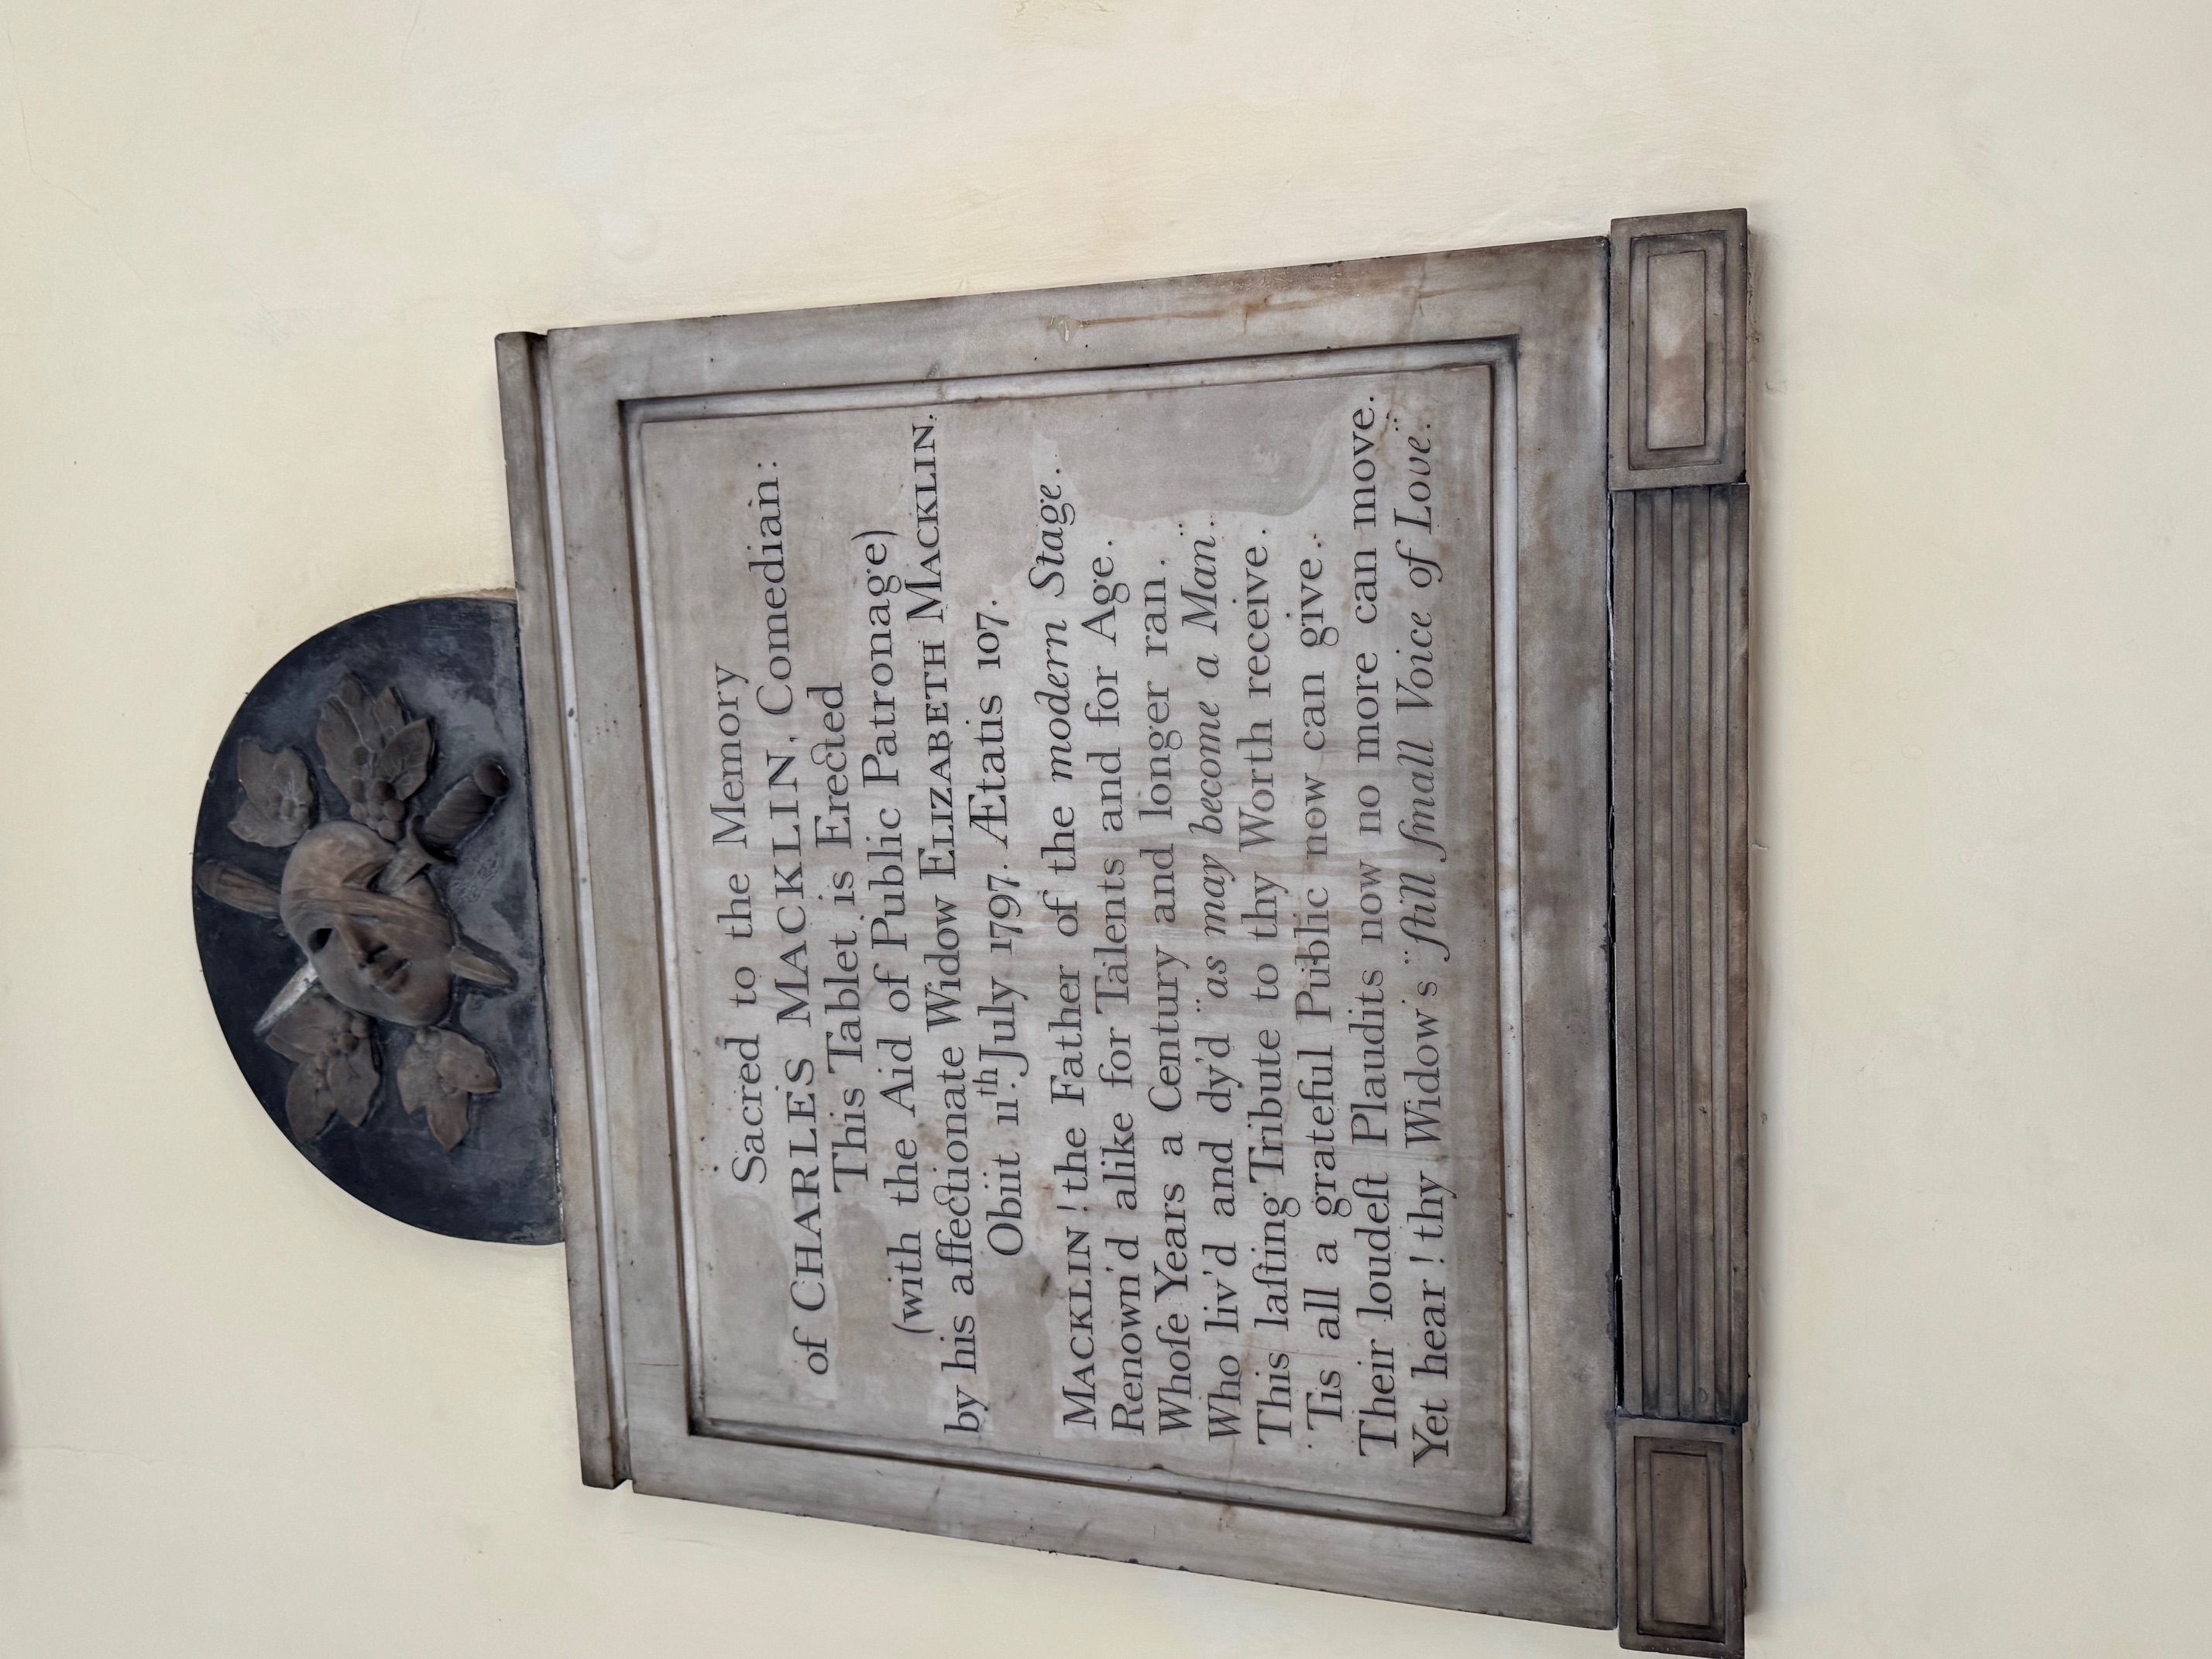 Sacred to the Memory
of CHARLES MACKLIN, Comedian:
This Tablet is Erected
(with the Aid of Public Patronage)
by his affectionate Widow ELIZABETH MACKLIN.
Obiit 11th July 1797. Ætatis 107.
MACKLIN! the Father of the modern Stage.
Renown'd alike for Talents and for Age.
Whoſe Years a Century and longer ran.
Who liv'd and dy'd "as may become a Man".
This laſting Tribute to thy Worth receive.
'Tis all a grateful Public now can give.
Their loudeſt Plaudits now no more can move.
Yet hear! thy Widow's "ſtill ſmall Voice of Love".